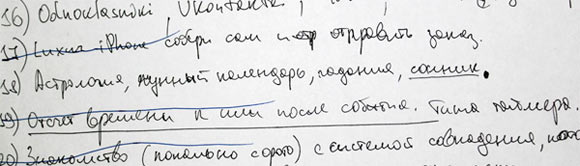 16) Odnoclasniki, Vkontakte,
17) Luxua iPhone собери сам и отправить заказ.
18) Астрология, лунный календарь, гадания, сонник.
19) Отсчет времени к или после события. Типа таймера.
20) Знакомство (прикольно) с системой совпадения,